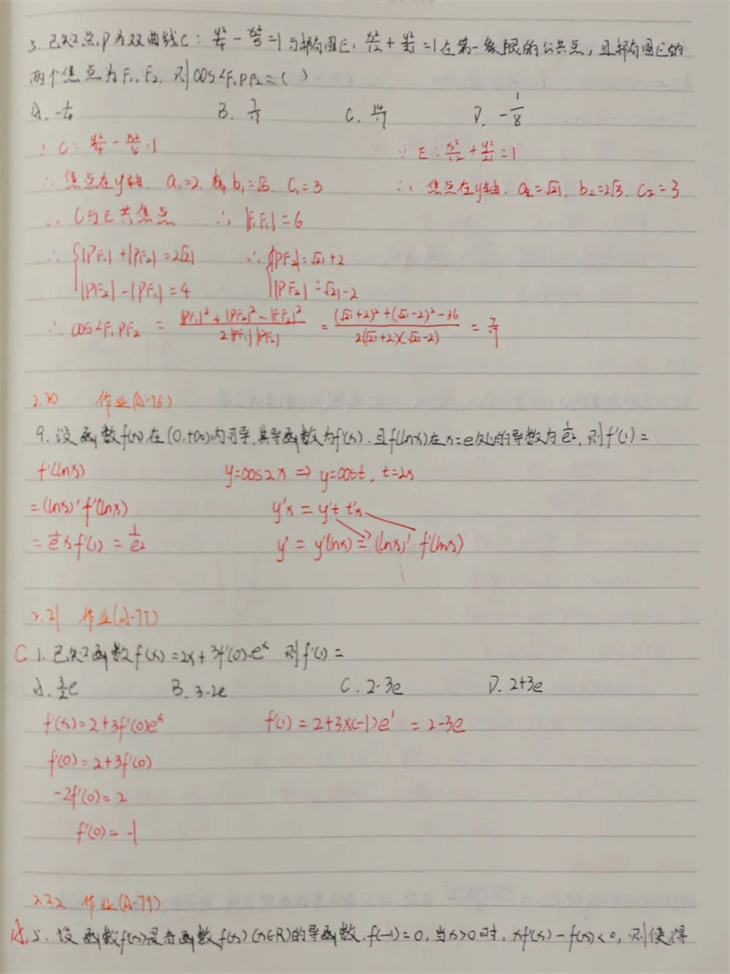 5. 已知点P为双曲线C: y²/4 - x²/5 = 1 与椭圆E: x²/12 + y²/21 = 1 在第一象限的公共点, 且椭圆E的
两个焦点为F₁, F₂, 则cos∠F₁PF₂=( )
A. -1/4 B. 7/17 C. D. -1/8
∵ C: y²/4 - x²/5 = 1 ∵ E: x²/12 + y²/21 = 1
∴ 焦点在y轴, a₁=2, b₁=√5, c₁=3 ∴ 焦点在y轴, a₂=√21, b₂=2√3, c₂=3
∴ C与E共焦点 ∴ |F₁F₂|=6
∴ |PF₁|+|PF₂|=2√21 ∴ |PF₂|=√21+2
|PF₂|-|PF₁|=4 |PF₂|=√21-2
∴ cos∠F₁PF₂ = (|PF₁|²+|PF₂|²-|F₁F₂|²)/(2|PF₁||PF₂|) = ((√21+2)²+(√21-2)²-36)/(2(√21+2)(√21-2)) = 7/17
2.20 作业(A-76)
9. 设函数f(x)在(0,+∞)内可导, 其导函数为f'(x), 且f(lnx)在x=e处的导数为1/e², 则f'(1)=
f'(lnx) y=cos2x ⇒ y=cost, t=2x
=(lnx)'f'(lnx) y'x = y't t'x
= 1/e × f'(1) = 1/e² y' = y'(lnx) = (lnx)' · f'(lnx)
2.21 作业(A-77)
C 1. 已知函数f(x)=2x+3f'(0)·eˣ 则f'(1)=
A. 3/2e B. 3-2e C. 2-3e D. 2+3e
f'(x)=2+3f'(0)eˣ f'(1)=2+3×(-1)e¹ =2-3e
f'(0)=2+3f'(0)
-2f'(0)=2
f'(0)=-1
2.22 作业(A-79)
A 5. 设函数f'(x)是奇函数f(x)(x∈R)的导函数, f(-1)=0, 当x>0时, xf'(x)-f(x)<0, 则使得